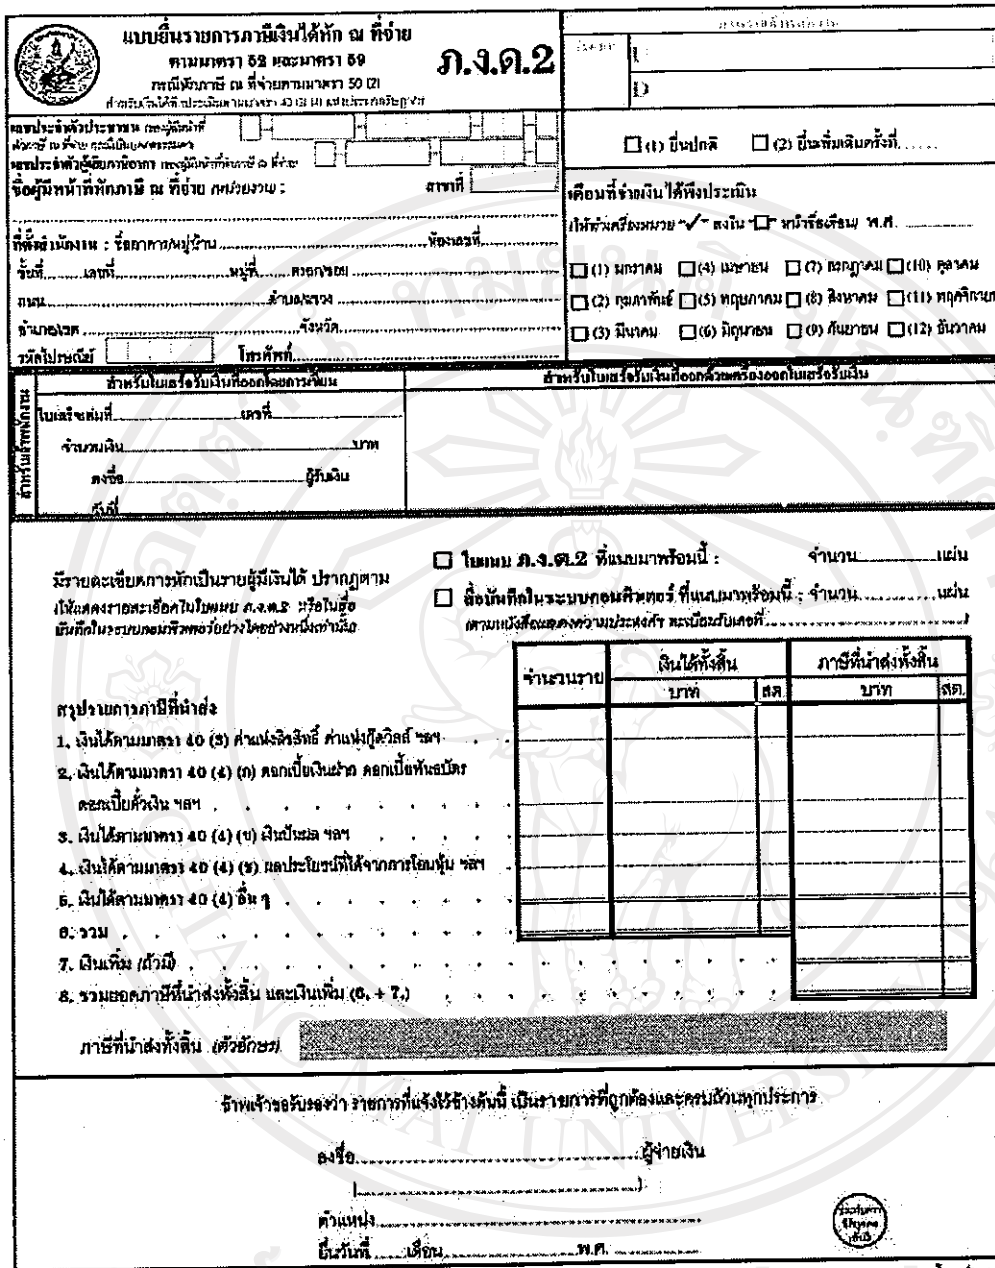 แบบยื่นรายการภาษีเงินได้หัก ณ ที่จ่าย
ตามมาตรา 52 และมาตรา 59
กรณีหักภาษี ณ ที่จ่ายตามมาตรา 50 (2)
สำหรับเงินได้พึงประเมินตามมาตรา 40 (3) (4) แห่งประมวลรัษฎากร
ภ.ง.ด.2
เลขประจำตัวประชาชน
เลขประจำตัวผู้เสียภาษีอากร
ชื่อผู้มีหน้าที่หักภาษี ณ ที่จ่าย (หน่วยงาน) :
สาขาที่
ที่ตั้งสำนักงาน : ชื่ออาคาร/หมู่บ้าน ห้องเลขที่
ชั้นที่ เลขที่ หมู่ที่ ตรอก/ซอย
ถนน ตำบล/แขวง
อำเภอ/เขต จังหวัด
รหัสไปรษณีย์ โทรศัพท์
(1) ยื่นปกติ (2) ยื่นเพิ่มเติมครั้งที่......
เดือนที่จ่ายเงินได้พึงประเมิน
(ให้ทำเครื่องหมาย "✓" ลงใน "☐" หน้าชื่อเดือน) พ.ศ.
☐ (1) มกราคม ☐ (4) เมษายน ☐ (7) กรกฎาคม ☐ (10) ตุลาคม
☐ (2) กุมภาพันธ์ ☐ (5) พฤษภาคม ☐ (8) สิงหาคม ☐ (11) พฤศจิกายน
☐ (3) มีนาคม ☐ (6) มิถุนายน ☐ (9) กันยายน ☐ (12) ธันวาคม
สำหรับเจ้าพนักงาน
สำหรับใบเสร็จรับเงินที่ออกโดยการเขียน
สำหรับใบเสร็จรับเงินที่ออกด้วยเครื่องออกใบเสร็จรับเงิน
ใบเสร็จเล่มที่ เลขที่
จำนวนเงิน บาท
ลงชื่อ ผู้รับเงิน
วันที่
มีรายละเอียดการหักเป็นรายผู้มีเงินได้ ปรากฏตาม
(ให้แสดงรายละเอียดในใบแนบ ภ.ง.ด.2 หรือในสื่อ
บันทึกในระบบคอมพิวเตอร์อย่างใดอย่างหนึ่งเท่านั้น)
☐ ใบแนบ ภ.ง.ด.2 ที่แนบมาพร้อมนี้ : จำนวน แผ่น
☐ สื่อบันทึกในระบบคอมพิวเตอร์ ที่แนบมาพร้อมนี้ : จำนวน แผ่น
(ตามหนังสือแสดงความประสงค์ฯ ทะเบียนรับเลขที่ )
สรุปรายการภาษีที่นำส่ง
จำนวนราย เงินได้ทั้งสิ้น ภาษีที่นำส่งทั้งสิ้น
บาท สต. บาท สต.
1. เงินได้ตามมาตรา 40 (3) ค่าแห่งลิขสิทธิ์ ค่าแห่งกู๊ดวิลล์ ฯลฯ
2. เงินได้ตามมาตรา 40 (4) (ก) ดอกเบี้ยเงินฝาก ดอกเบี้ยพันธบัตร
ดอกเบี้ยตั๋วเงิน ฯลฯ
3. เงินได้ตามมาตรา 40 (4) (ข) เงินปันผล ฯลฯ
4. เงินได้ตามมาตรา 40 (4) (ช) ผลประโยชน์ที่ได้จากการโอนหุ้น ฯลฯ
5. เงินได้ตามมาตรา 40 (4) อื่น ๆ
6. รวม
7. เงินเพิ่ม (ถ้ามี)
8. รวมยอดภาษีที่นำส่งทั้งสิ้น และเงินเพิ่ม (6. + 7.)
ภาษีที่นำส่งทั้งสิ้น (ตัวอักษร)
ข้าพเจ้าขอรับรองว่า รายการที่แจ้งไว้ข้างต้นนี้ เป็นรายการที่ถูกต้องและครบถ้วนทุกประการ
ลงชื่อ ผู้จ่ายเงิน
( )
ตำแหน่ง
ยื่นวันที่ เดือน พ.ศ.
CHIANG MAI UNIVERSITY